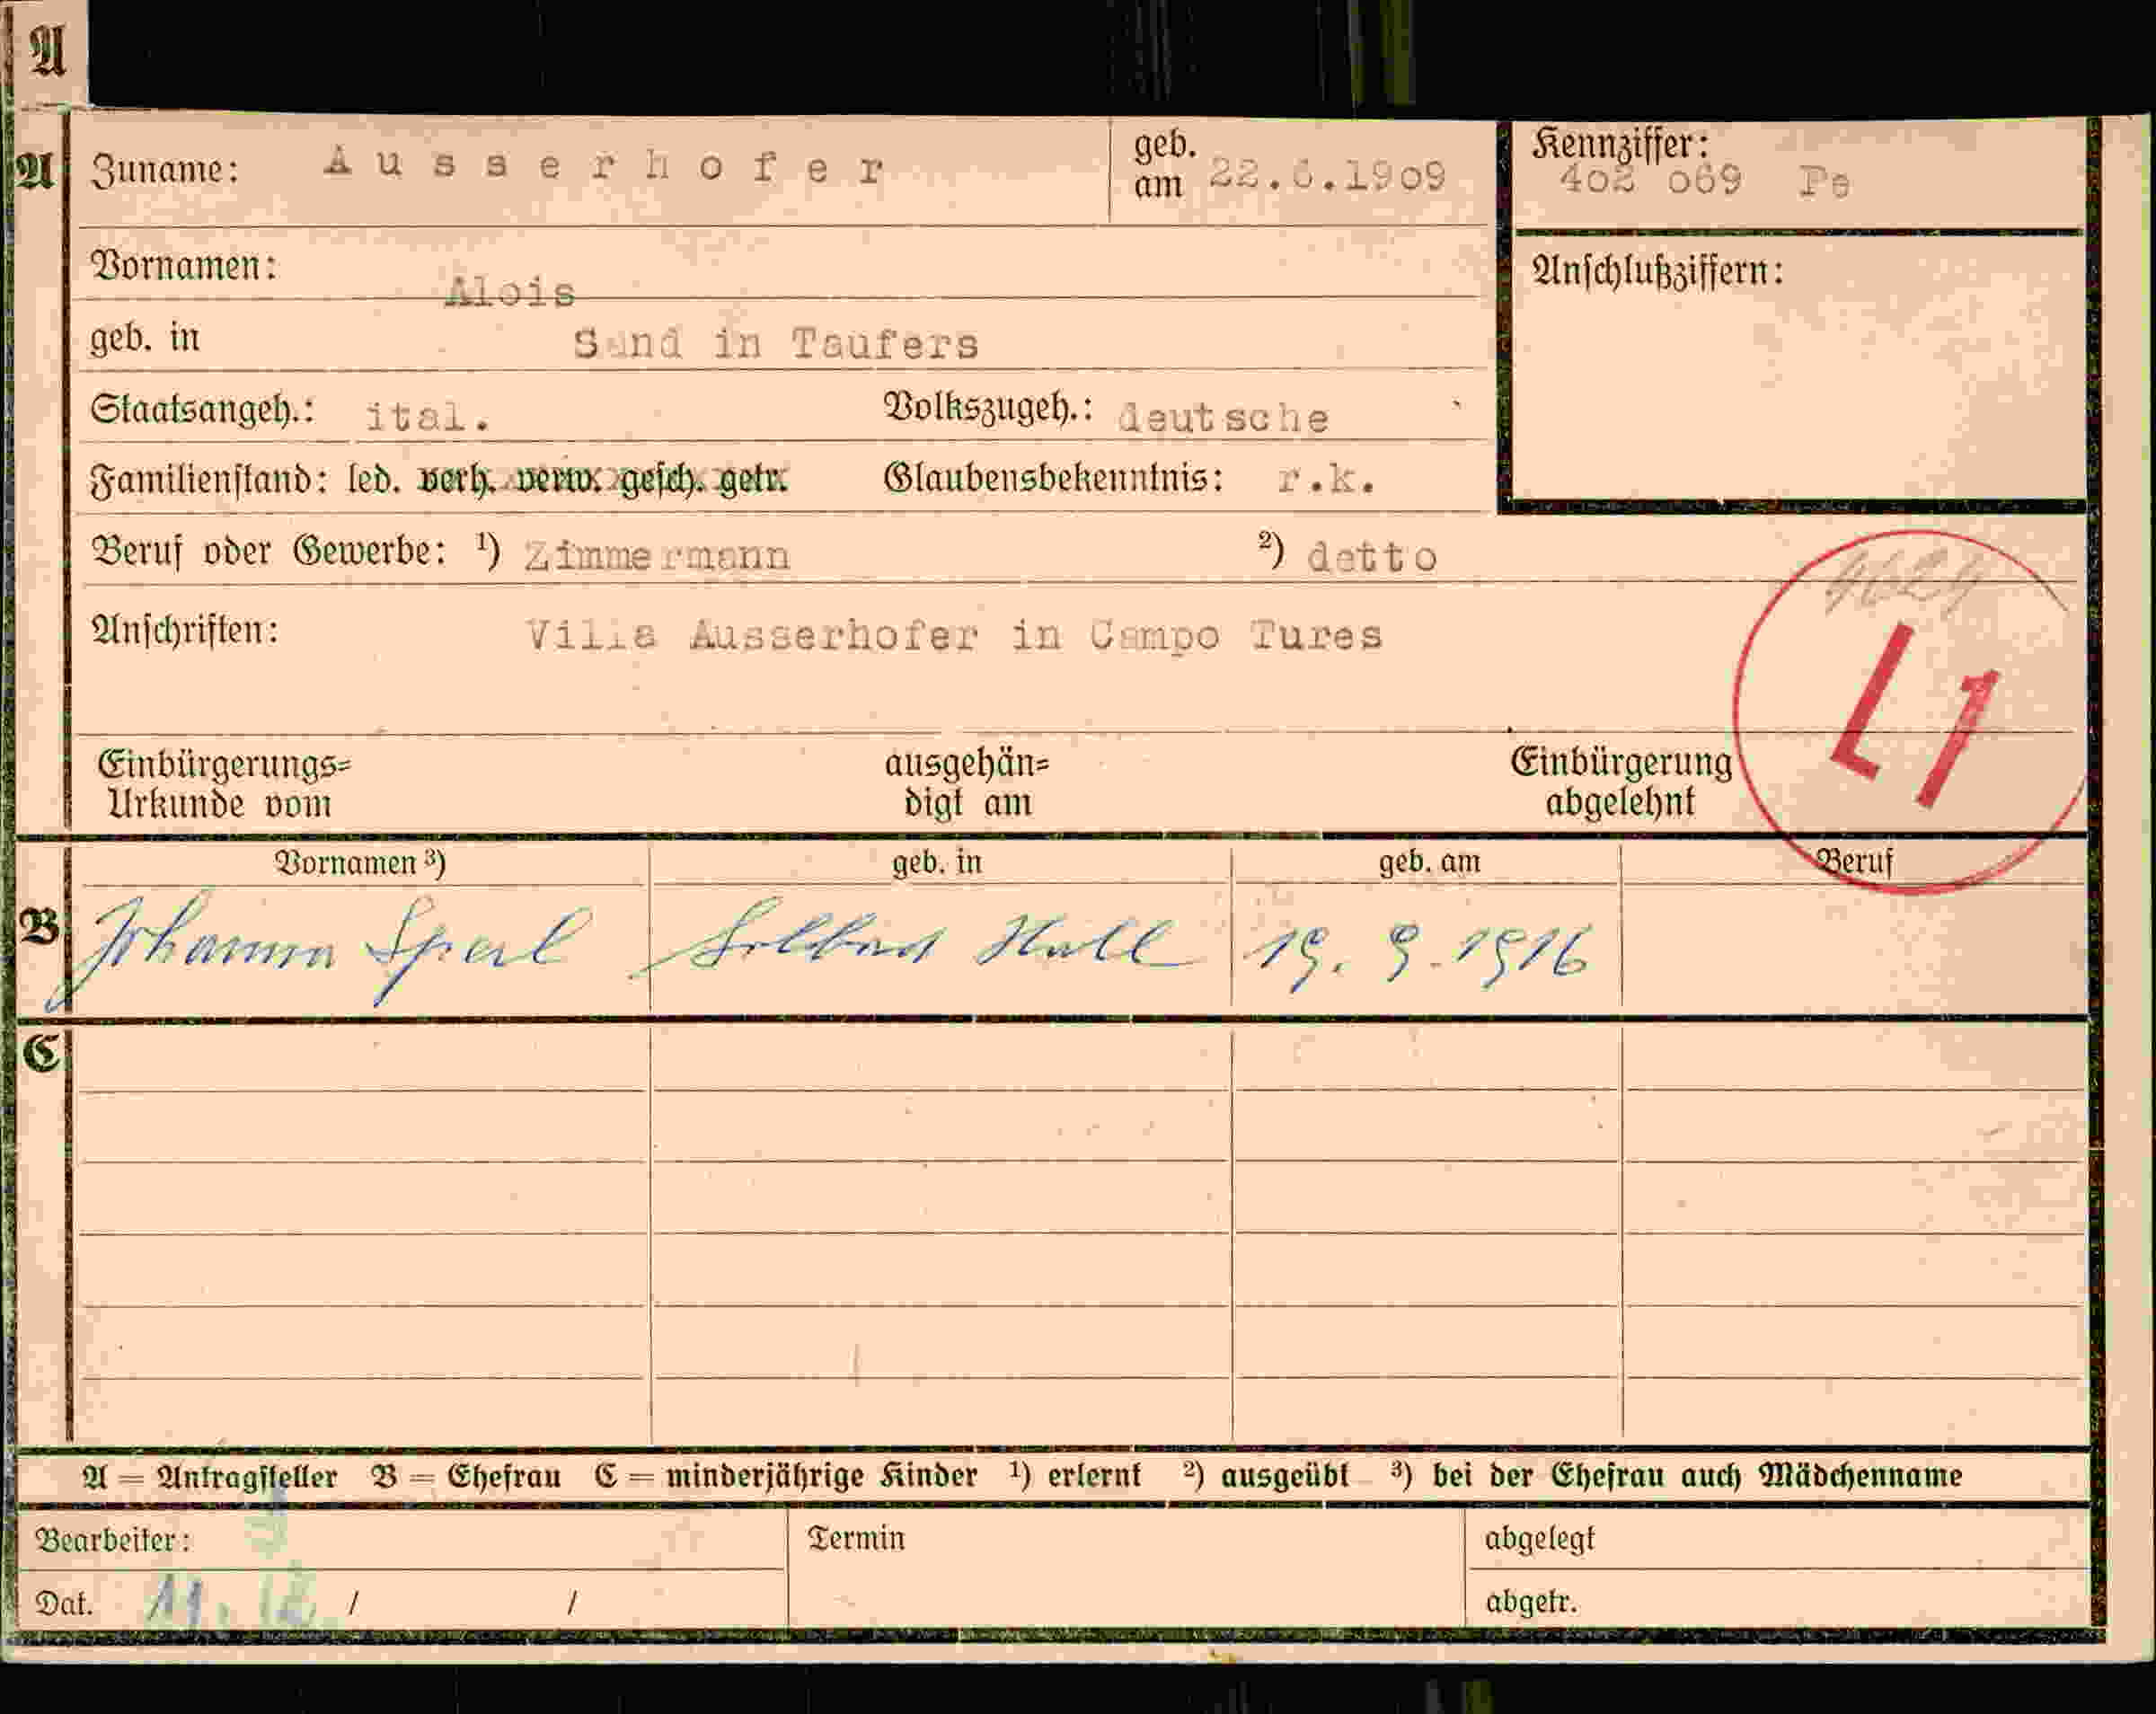 A
A Zuname: Ausserhofer geb. am 22.6.1909 Kennziffer: 402 069 Pe
Vornamen: Alois Anschlußziffern:
geb. in Sand in Taufers
Staatsangeh.: ital. Volkszugeh.: deutsche
Familienstand: led. verh. verw. gesch. getr. Glaubensbekenntnis: r.k.
Beruf oder Gewerbe: ¹) Zimmermann ²) detto
4624
Anschriften: Villa Ausserhofer in Campo Tures
L1
Einbürgerungs= ausgehän= Einbürgerung
Urkunde vom digt am abgelehnt
Vornamen ³) geb. in geb. am Beruf
B Johanna Sperl Solbad Hall 19. 9. 1916
C
A = Antragsteller B = Ehefrau C = minderjährige Kinder ¹) erlernt ²) ausgeübt ³) bei der Ehefrau auch Mädchenname
Bearbeiter: Termin abgelegt
Dat. 11. 12 / / abgetr.